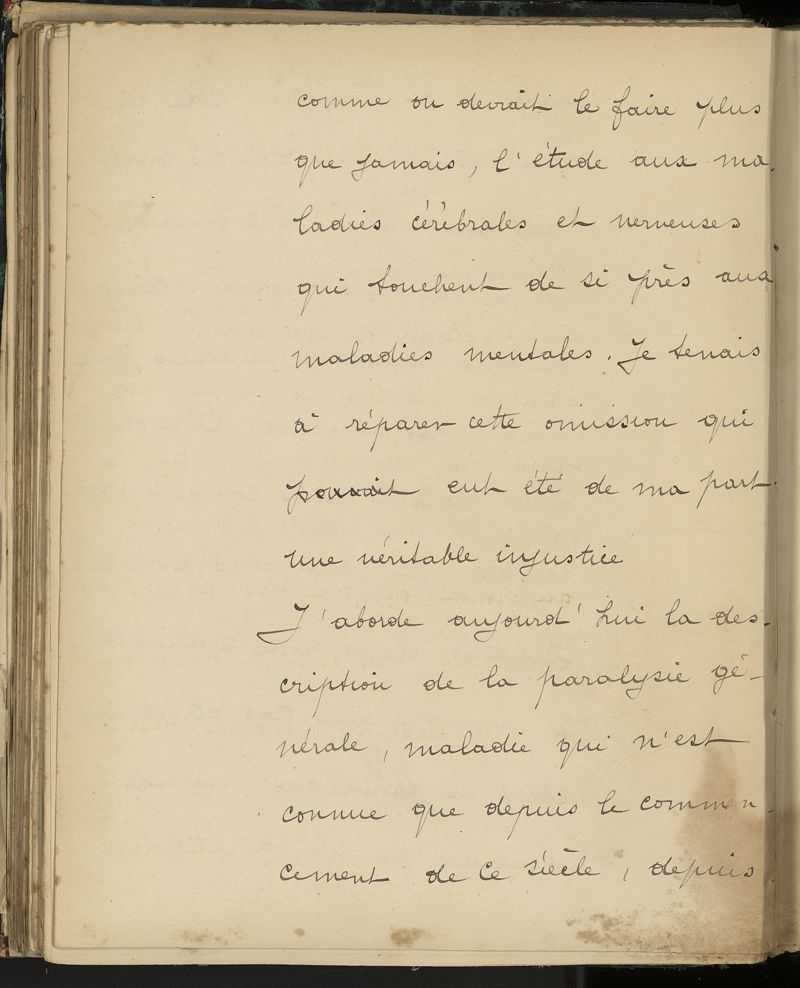 comme on devrait le faire plus
que jamais, l'étude aux ma-
ladies cérébrales et nerveuses
qui touchent de si près aux
maladies mentales. Je tenais
à réparer cette omission qui
pouvait eut été de ma part
une véritable injustice
J'aborde aujourd'hui la des-
cription de la paralysie gé-
nérale, maladie qui n'est
connue que depuis le commen-
cement de ce siècle, depuis